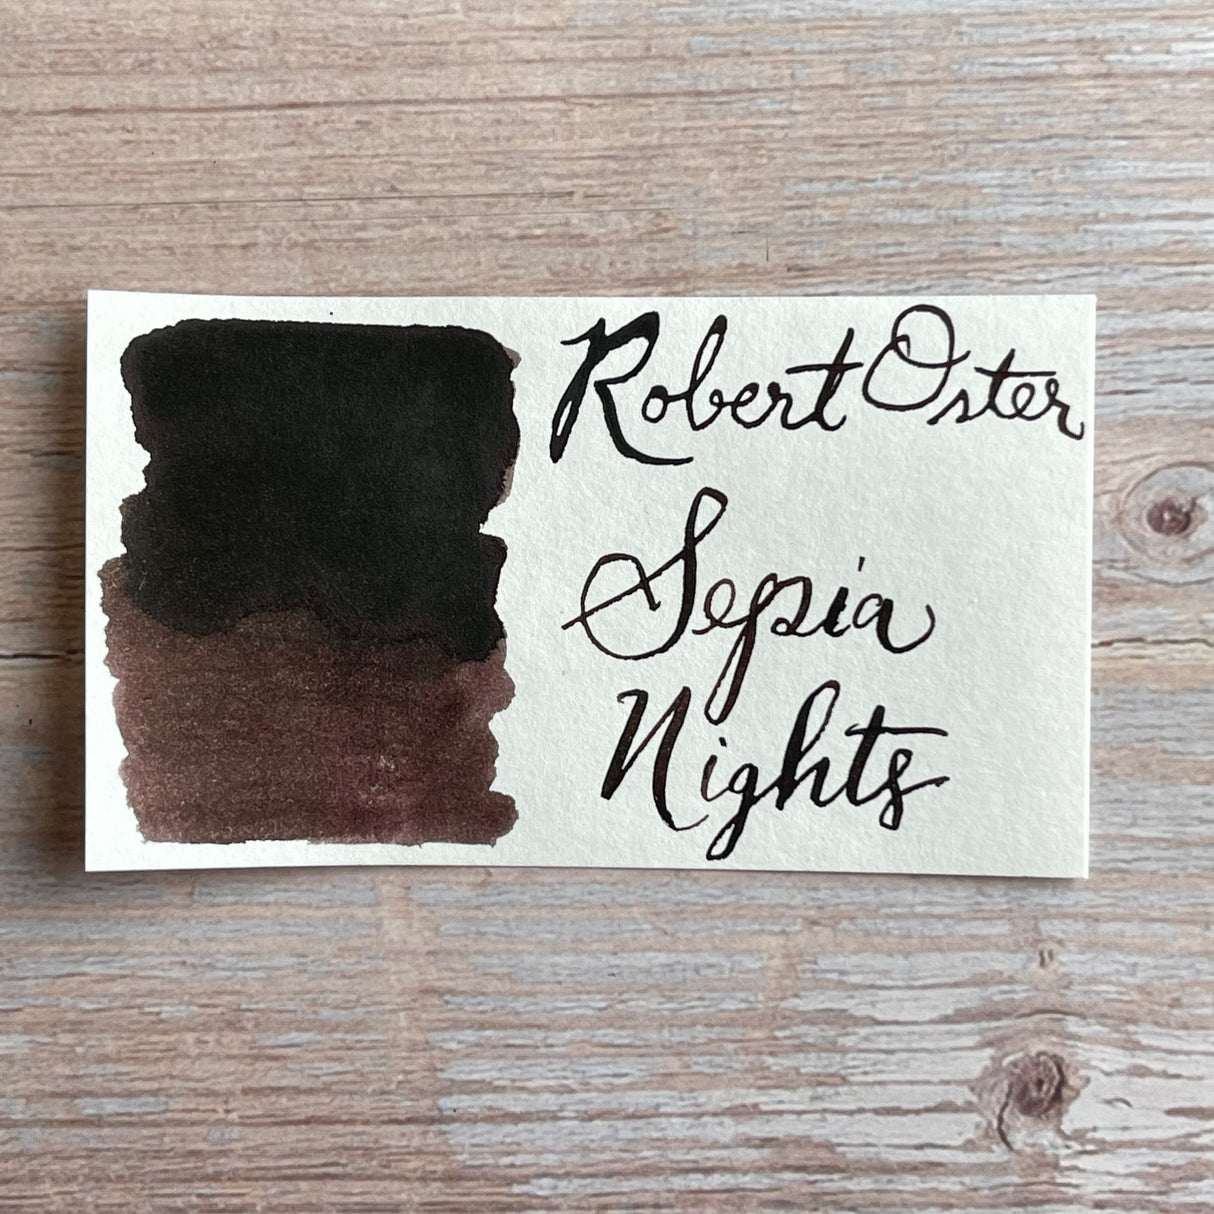 Robert Oster
Sepia
Nights